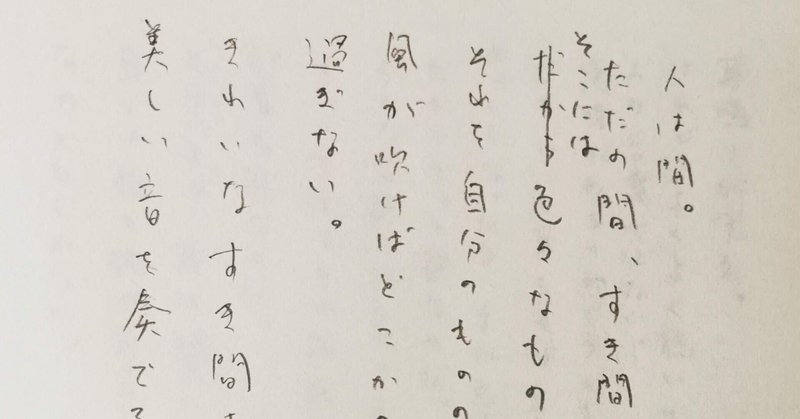 人は間。
ただの間、すき間
そこには
だから色々なもの
それを自分のものの
風が吹けばどこかの
過ぎない。
きれいなすき間を
美しい音を奏でる